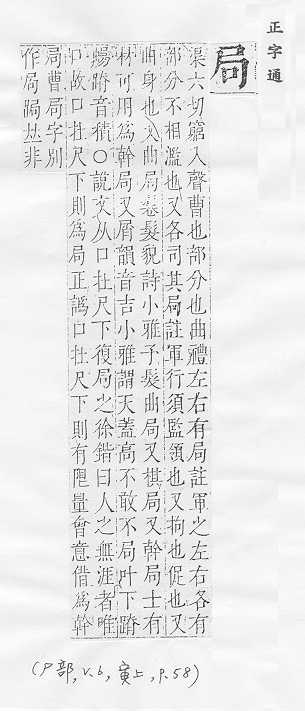 正字通
局
渠六切窮入聲曹也部分也曲禮左右有局註軍之左右各有
部分不相濫也又各司其局註軍行須監領也又拘也促也又
曲身也又曲局卷髮貌詩小雅予髮曲局又棋局又幹局士有
材可用爲幹局又屑韻音吉小雅謂天蓋高不敢不局叶下蹐
蹐音積○說文从口在尺下復局之徐鍇曰人之無涯者唯
口故口在尺下則爲局正譌口在尺下則有限量會意借爲幹
局曹局字別
作局跼𠀤非
(尸部, v.6, 寅上, p.58)